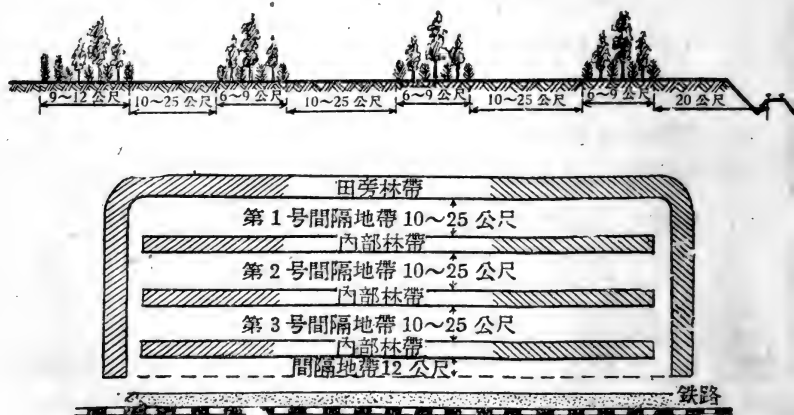 9～12公尺 10～25公尺 6～9公尺 10～25公尺 6～9公尺 10～25公尺 6～9公尺 20公尺
田旁林帶
第1号間隔地帶10～25公尺
內部林帶
第2号間隔地帶10～25公尺
內部林帶
第3号間隔地帶10～25公尺
內部林帶
間隔地帶12公尺
鉄路